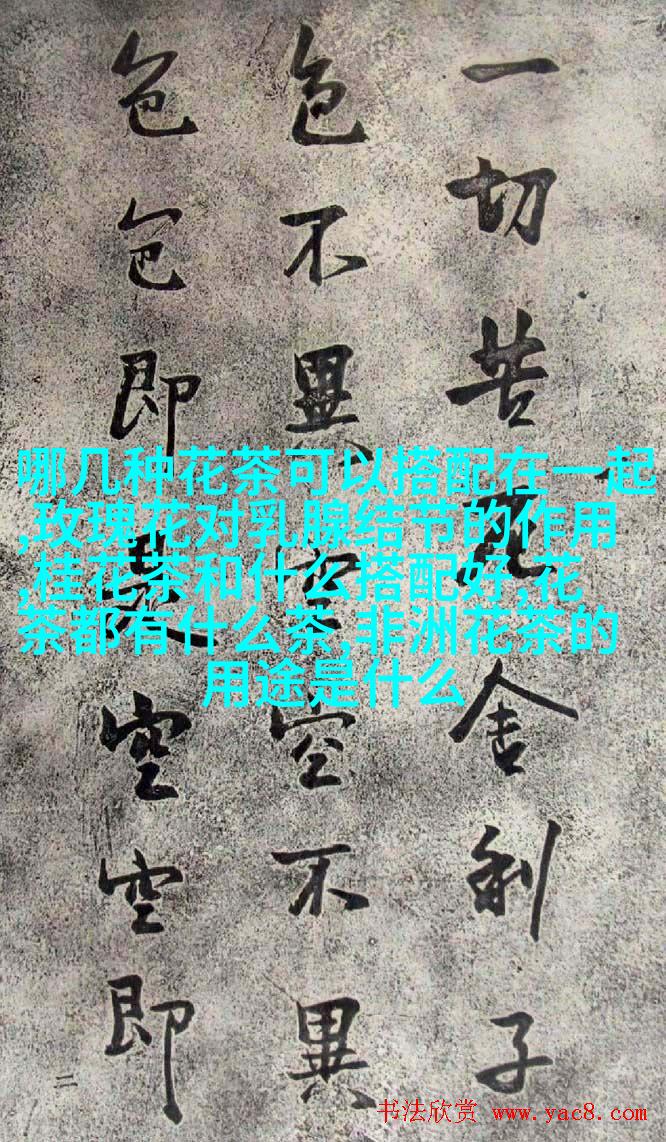 一切苦厄舍利子
色不異空空不異
色色即是空空即
二
哪几种花茶可以搭配在一起
,玫瑰花对乳腺结节的作用
,桂花茶和什么搭配好,花
茶都有什么茶,非洲花茶的
用途是什么
书法欣赏 www.yac8.com